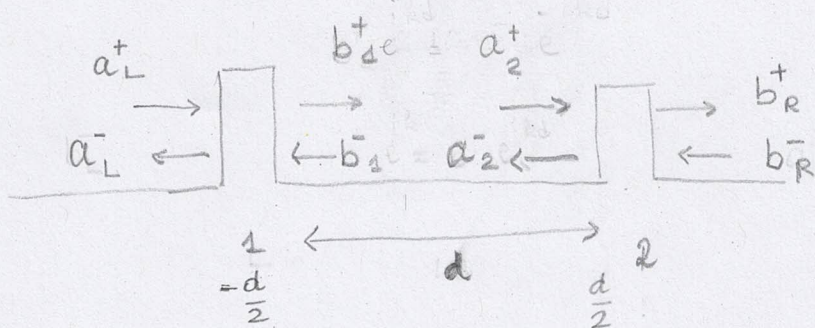 a⁺_L b⁺_1 a⁺_2 b⁺_R
a⁻_L b⁻_1 a⁻_2 b⁻_R
1 d 2
-d/2 d/2